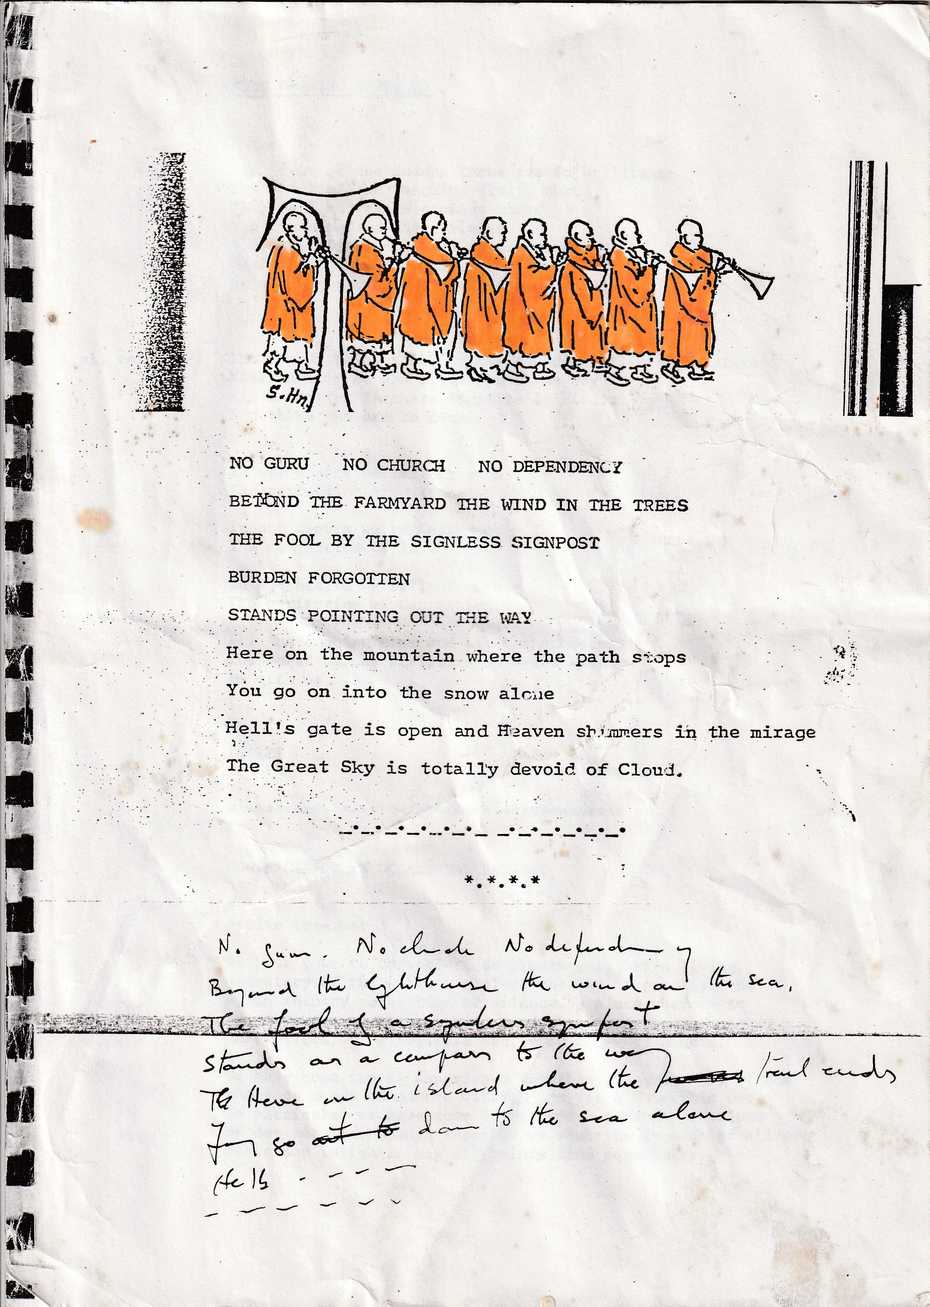 S.Hn.
NO GURU NO CHURCH NO DEPENDENCY
BEYOND THE FARMYARD THE WIND IN THE TREES
THE FOOL BY THE SIGNLESS SIGNPOST
BURDEN FORGOTTEN
STANDS POINTING OUT THE WAY
Here on the mountain where the path stops
You go on into the snow alone
Hell's gate is open and Heaven shimmers in the mirage
The Great Sky is totally devoid of Cloud.
_._._._._._._ _._._._._._.
*.*.*.*
No guru. No church No dependency
Beyond the lighthouse the wind on the sea.
The fool of a signless signpost
Stands as a compass to the way
Th Here on the island where the trail ends
You go out to down to the sea alone
Hells - - - -
- - - - - -